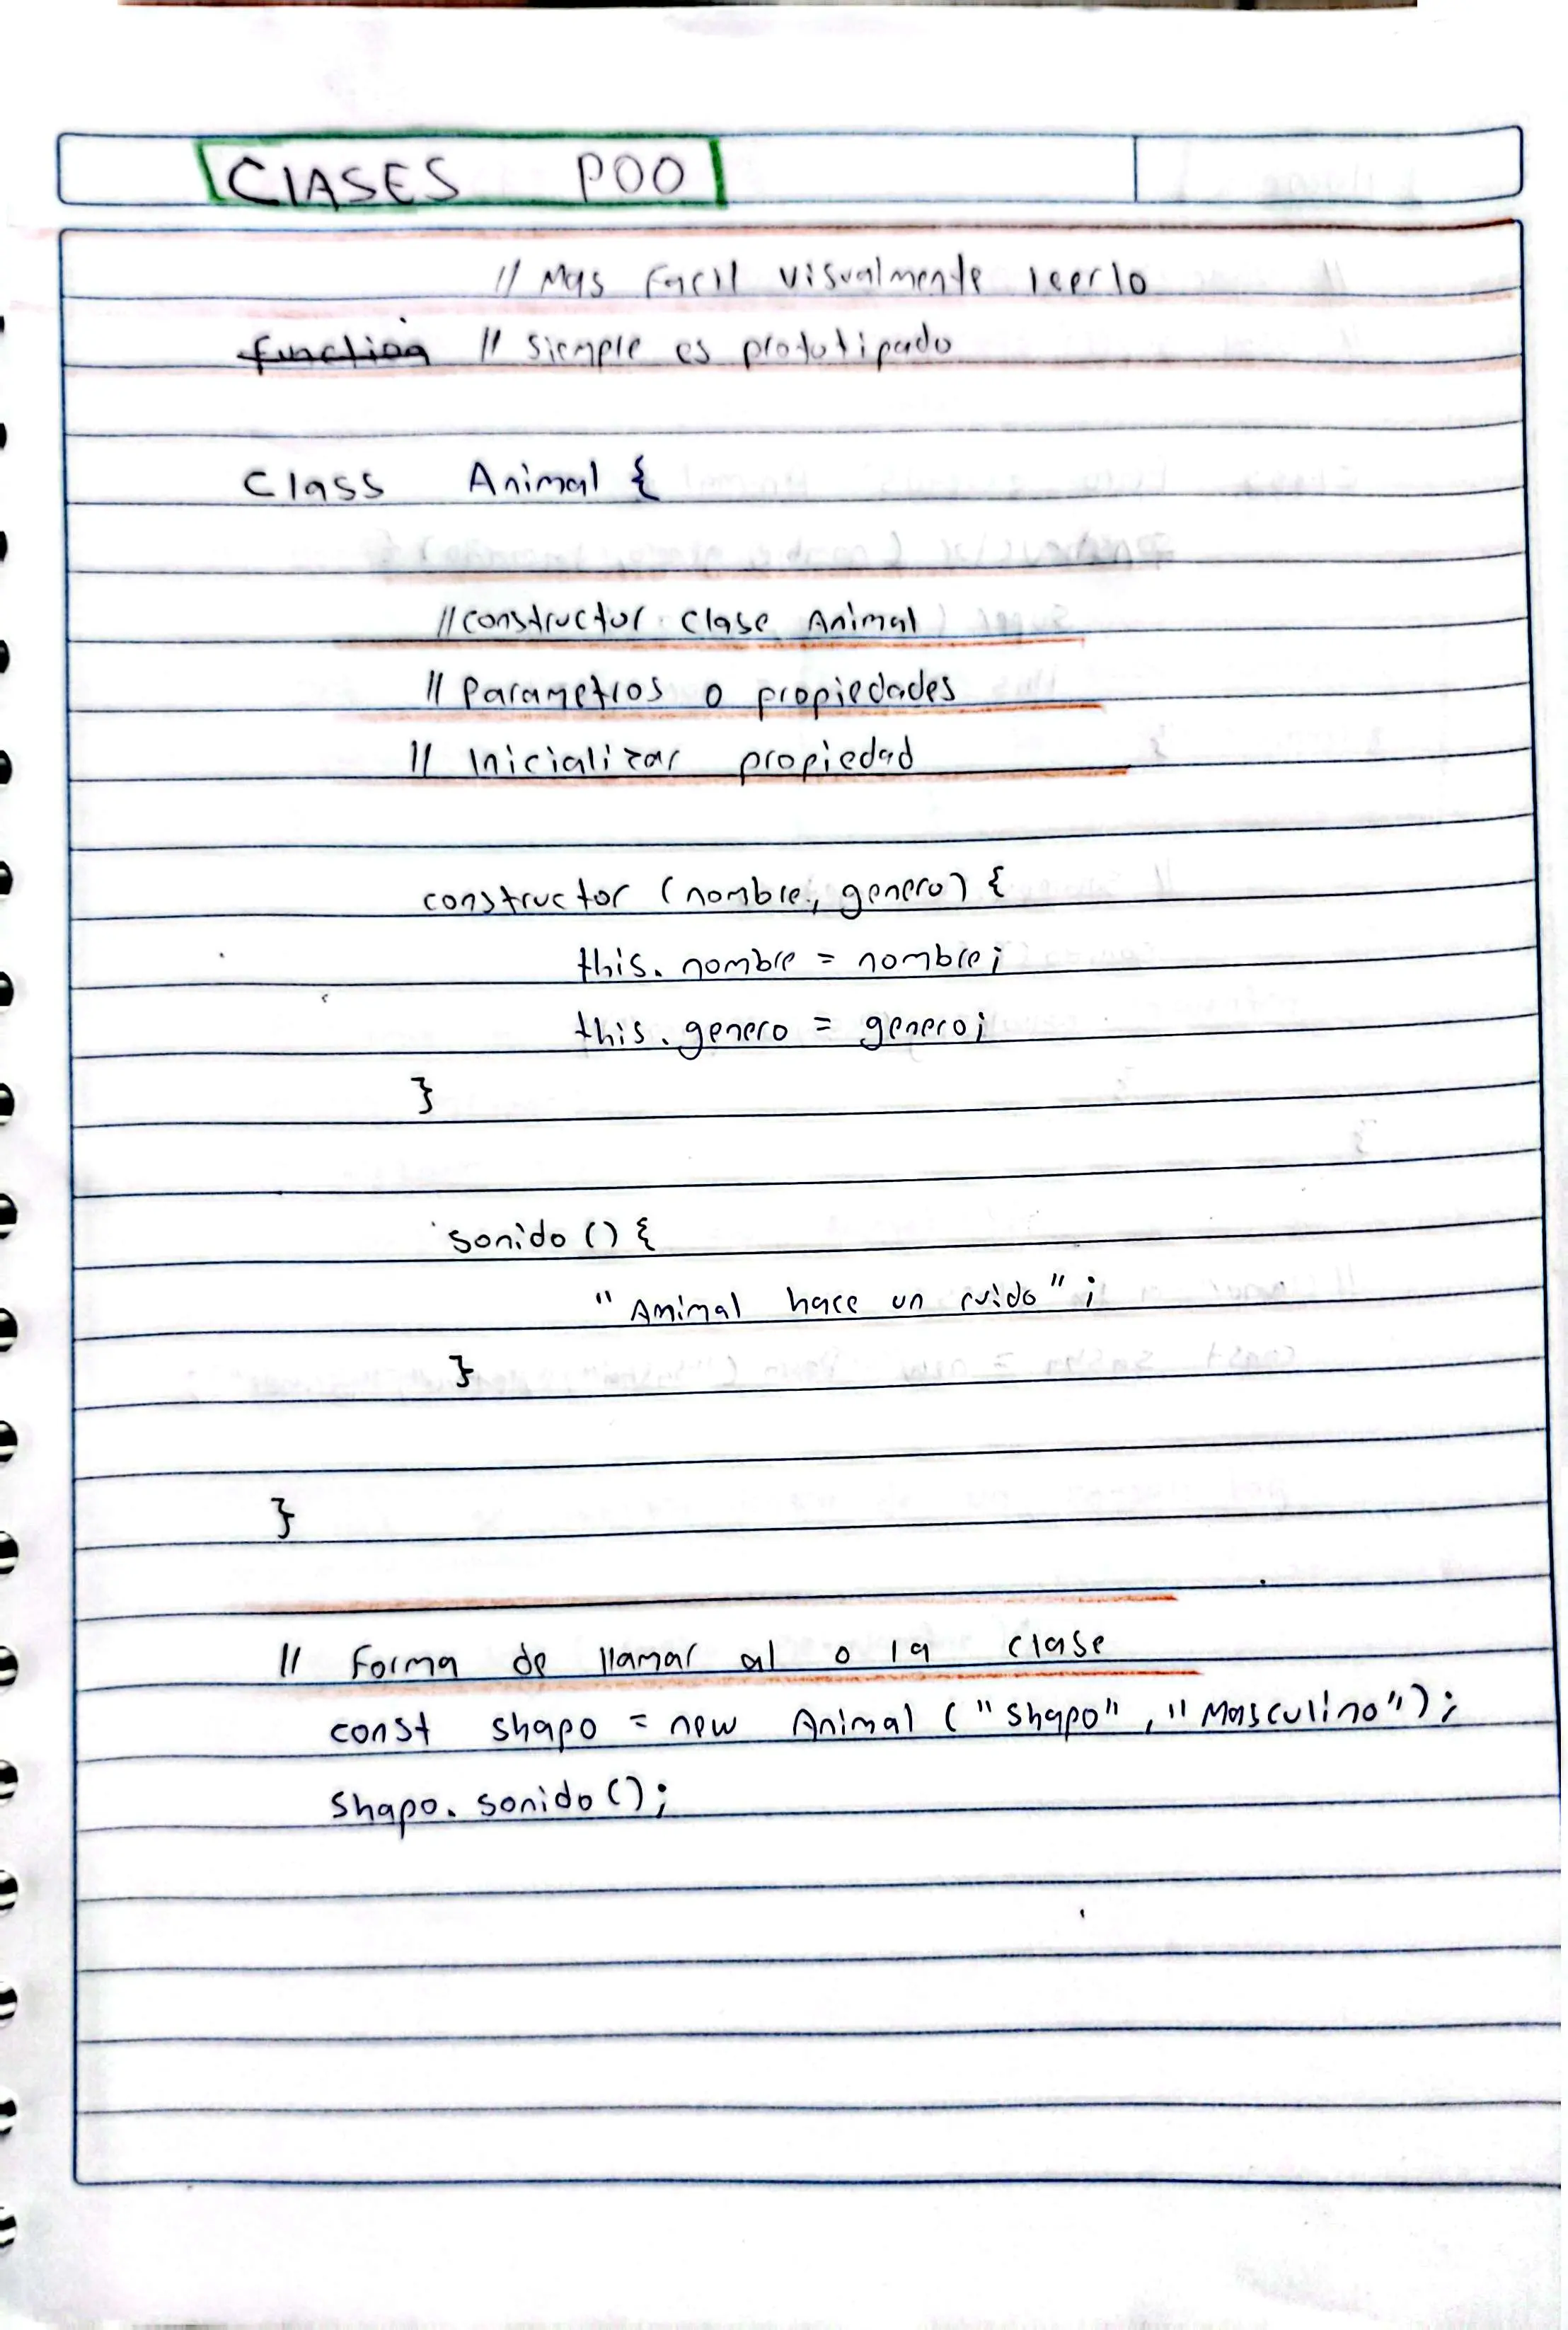 CLASES POO
// Mas Facil visualmente leerlo
function // siempre es prototipado
Class Animal {
//constructor clase Animal
// Parametros o propiedades
// Inicializar propiedad
constructor (nombre, genero) {
this. nombre = nombre;
this. genero = genero;
}
sonido () {
"Animal hace un ruido";
}
}
// Forma de llamar al o la clase
const shapo = new Animal ("Shapo", "Masculino");
Shapo. sonido ();